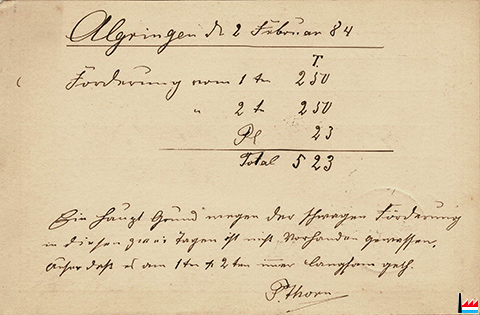 Algringen de 2 Februar 84
T.
Förderung vom 1 ten 250
" 2 t 250
Pl 23
Total 523
Ein haupt Grund wegen der schwagen Förderung
in diesen zwei Tagen ist nicht Vorhanden gewesen,
auser daß es am 1ten & 2ten immer langsam geth.
P. Thorn